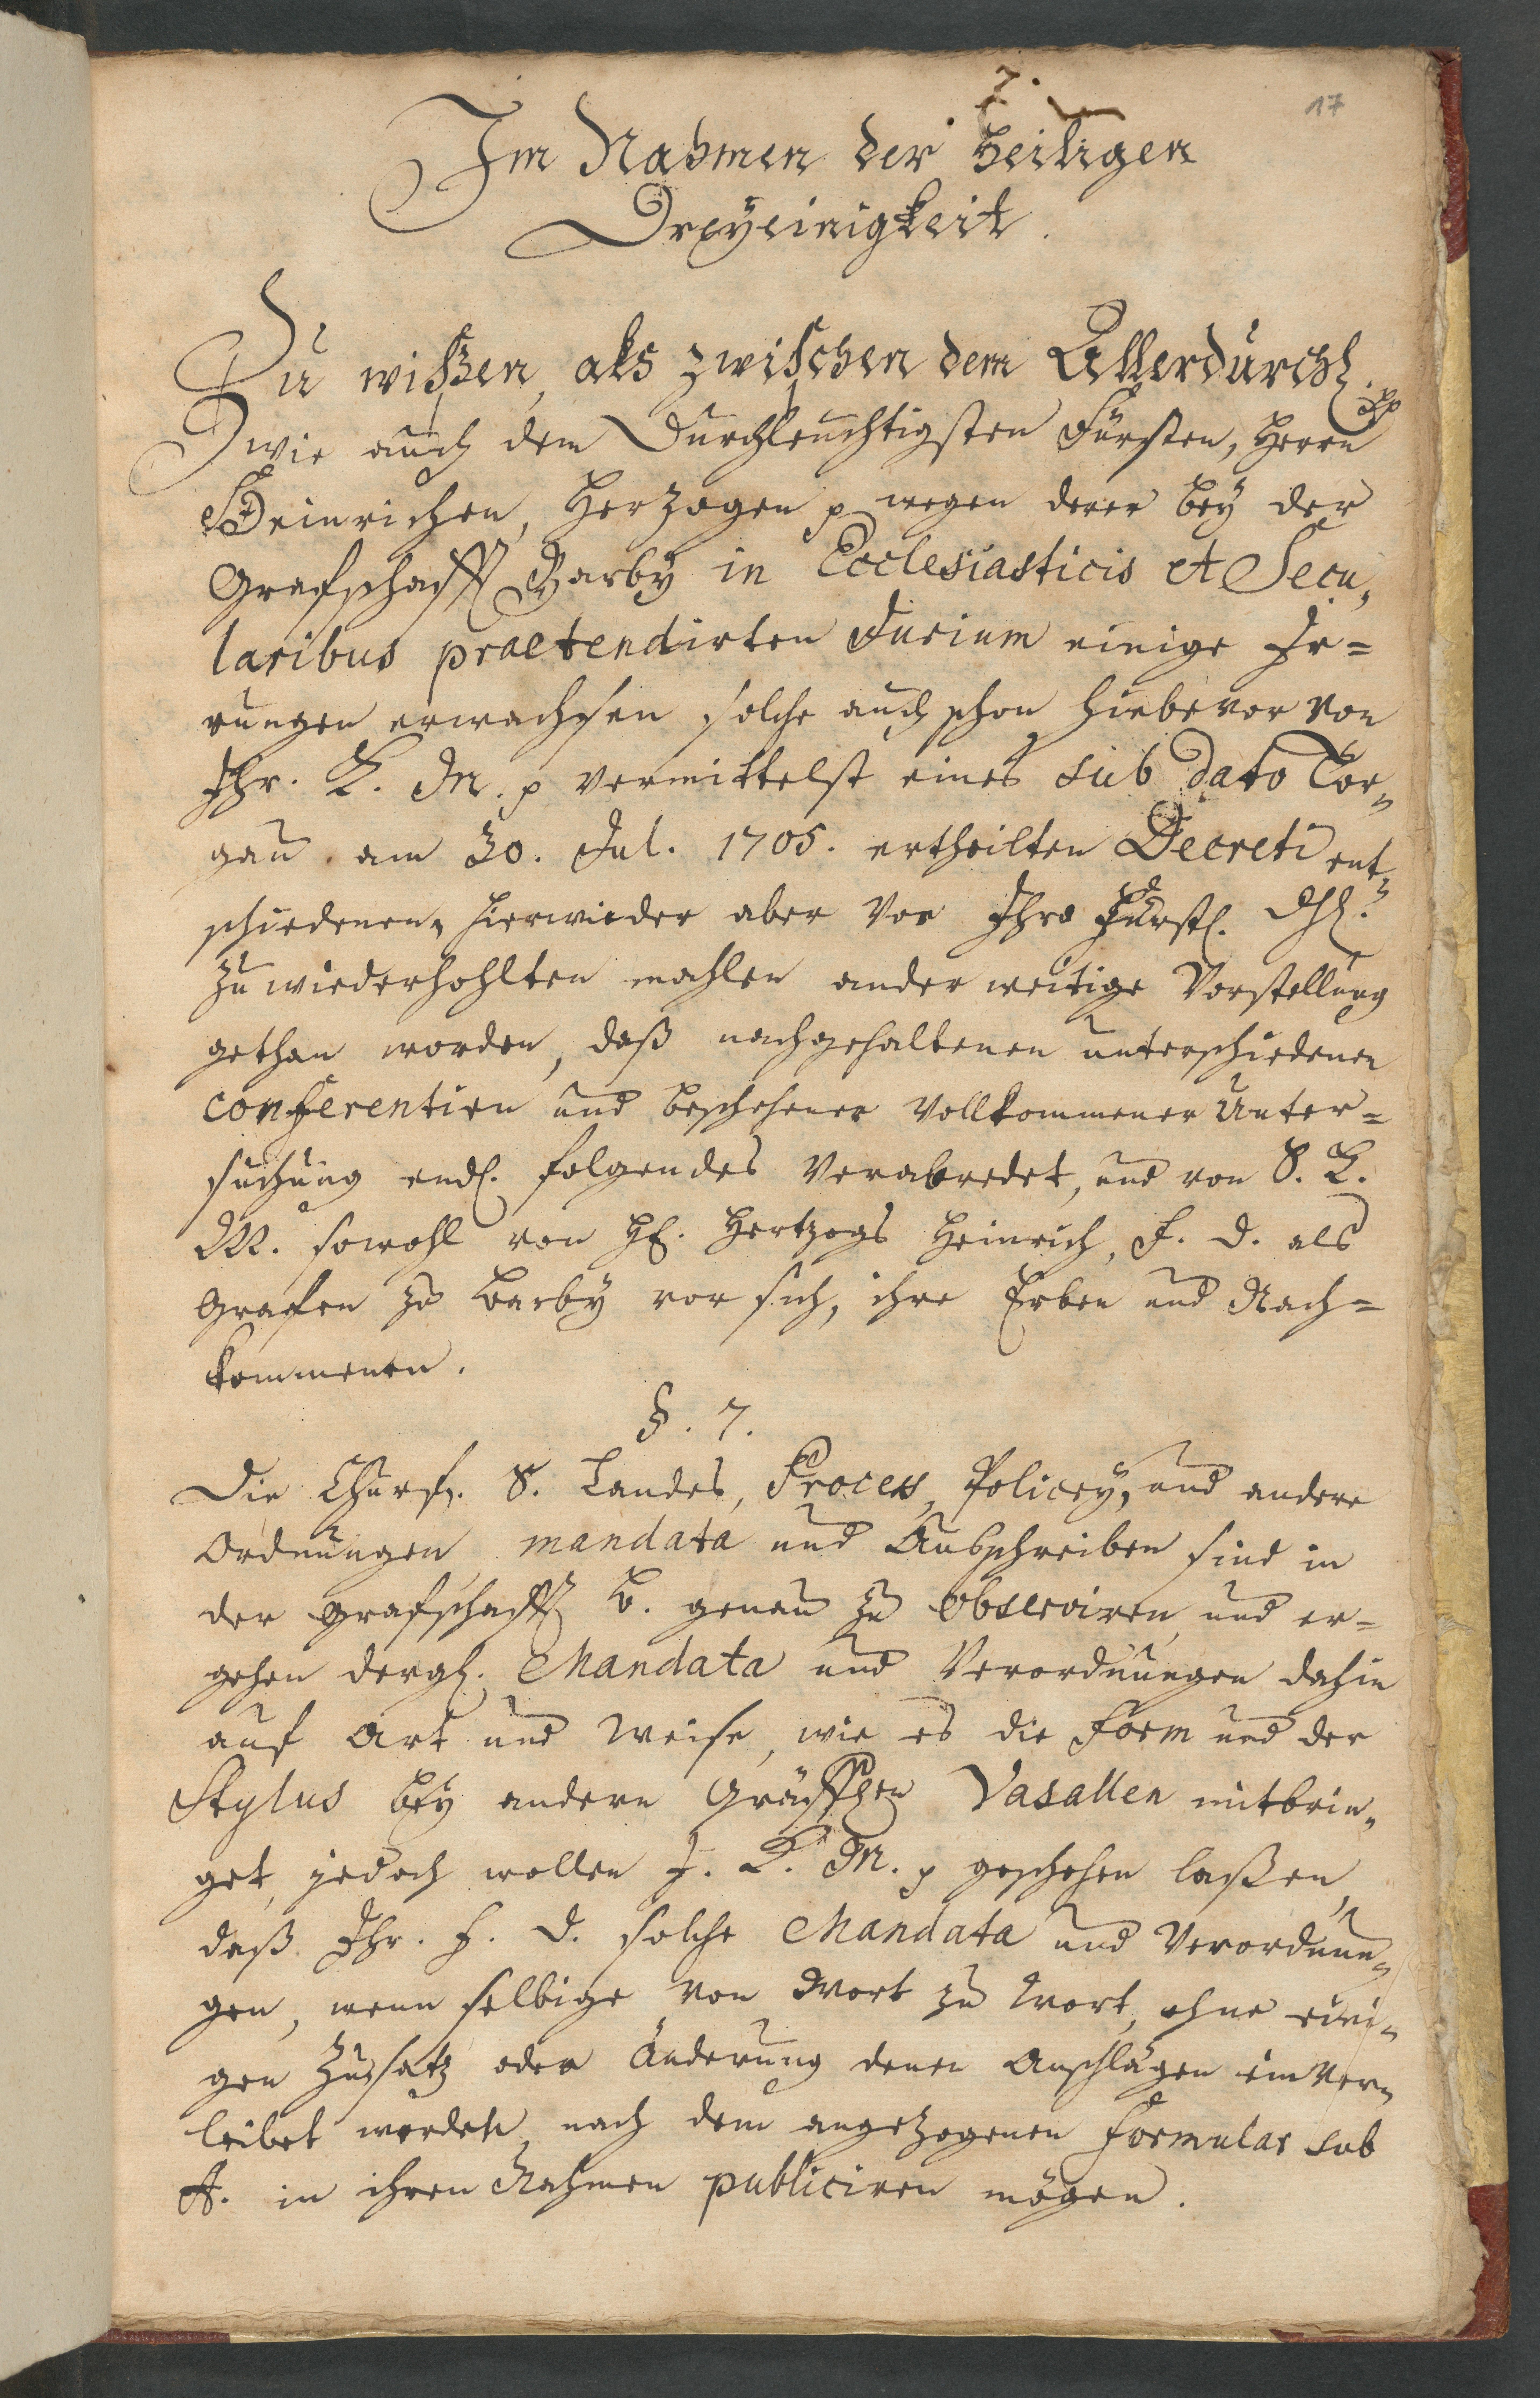 7.
17
Im Nahmen der Heiligen
Dreyeinigkeit.
Zu wißen, als zwischen dem Allerdurchl. pp
wie auch dem Durchleuchtigsten Fürsten, Herrn
Heinrichen, Herzogen p wegen derer bey der
Grafschafft Barby in Ecclesiasticis et Secu-
laribus praetendirten Jurium einige Ir=
rungen erwachsen solche auch schon hiebevor von
Ihr. K. M. p vermittelst eines sub dato Tor-
gau am 30. Jul. 1705. ertheilten Decreti ent-
schiedenen, hierwieder aber von Ihro Fürstl. Dhl.
zu wiederhohlten mahlen anderweitige Vorstellung
gethan worden, daß nachgehaltenen unterschiedenen
conferentien und beschehener vollkommener Unter=
suchung endl. folgendes verabredet, und von S. K.
M. sowohl von H. Hertzogs Heinrich, F. D. als
Grafen zu Barby vor sich, ihre Erben und Nach=
kommenen.
§. 7.
Die Churf. S. Landes, Process, Policey, und andere
Ordnungen, mandata und Außschreiben sind in
der Grafschafft B. genau zu observiren, und er=
gehen dergl. Mandata und Verordnungen dahin
auf Art und Weise, wie es die Form und der
Stylus bey andern Gräfflen Vasallen mitbrin-
get, jedoch wollen I. K. M. p geschehen laßen,
daß Ihr. F. D. solche Mandata und Verordnun-
gen, wenn selbige von Wort zu Wort, ohne eini-
gen Zusatz oder Änderung denen Anschlägen einver-
leibet werden, nach dem angezogenen Formular sub
A. in ihren Nahmen publiciren mögen.